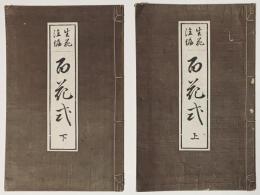 生花
注解
百花式
上
生花
注解
百花式
下